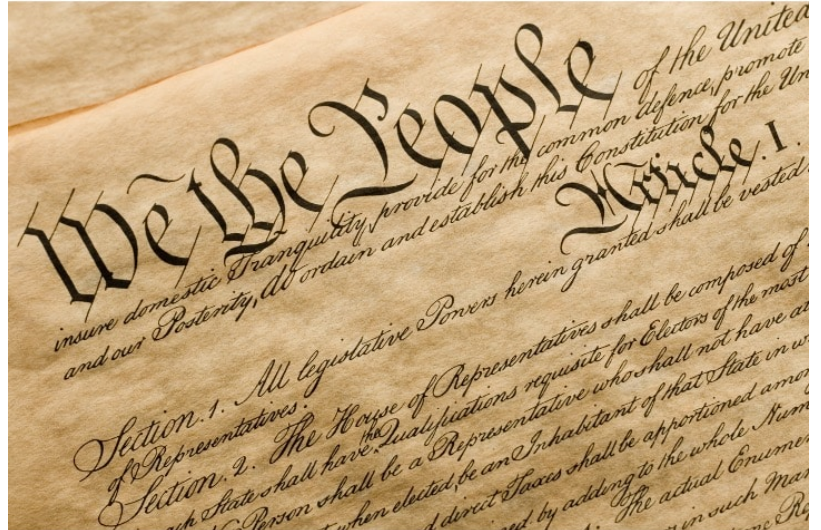 We the People of the United
insure domestic Tranquility, provide for the common defence, promote
and our Posterity, do ordain and establish this Constitution for the Un
Article. I.
Section. 1. All legislative Powers herein granted shall be vested
of Representatives.
Section. 2. The House of Representatives shall be composed of
ach State shall have the Qualifications requisite for Electors of the most
No Person shall be a Representative who shall not have at
not when elected, be an Inhabitant of that State in w
d direct Taxes shall be apportioned amon
ed, by adding to the whole Num
The actual Enumer
in such Man